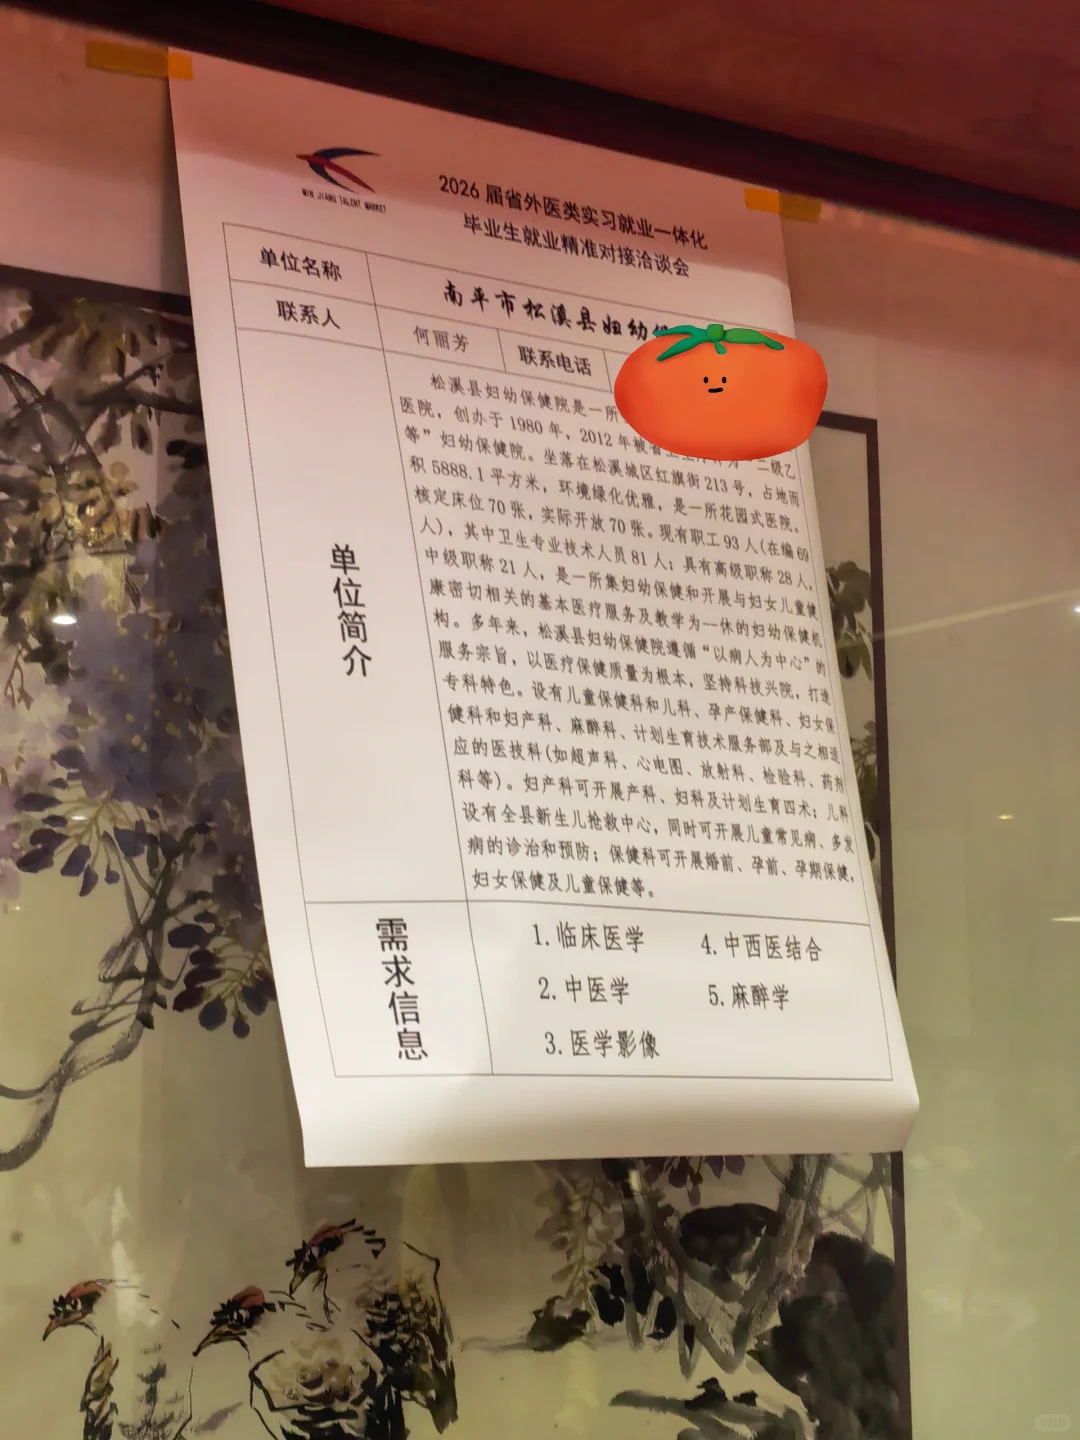 MIN JIANG TALENT MARKET
2026 届省外医类实习就业一体化
毕业生就业精准对接洽谈会
单位名称
南平市松溪县妇幼
联系人
何丽芳
联系电话
单位简介
松溪县妇幼保健院是一所
医院，创办于 1980 年，2012 年被省 二级乙
等”妇幼保健院。坐落在松溪城区红旗街 213 号，占地面
积 5888.1 平方米，环境绿化优雅，是一所花园式医院。
核定床位 70 张，实际开放 70 张。现有职工 93 人(在编 69
人），其中卫生专业技术人员 81 人；具有高级职称 28 人，
中级职称 21 人，是一所集妇幼保健和开展与妇女儿童健
康密切相关的基本医疗服务及教学为一休的妇幼保健机
构。多年来，松溪县妇幼保健院遵循“以病人为中心”的
服务宗旨，以医疗保健质量为根本，坚持科技兴院，打造
专科特色。设有儿童保健科和儿科、孕产保健科、妇女保
健科和妇产科、麻醉科、计划生育技术服务部及与之相适
应的医技科(如超声科、心电图、放射科、检验科、药剂
科等）。妇产科可开展产科、妇科及计划生育四术；儿科
设有全县新生儿抢救中心，同时可开展儿童常见病、多发
病的诊治和预防；保健科可开展婚前、孕前、孕期保健，
妇女保健及儿童保健等。
需求信息
1.临床医学
4.中西医结合
2.中医学
5.麻醉学
3.医学影像